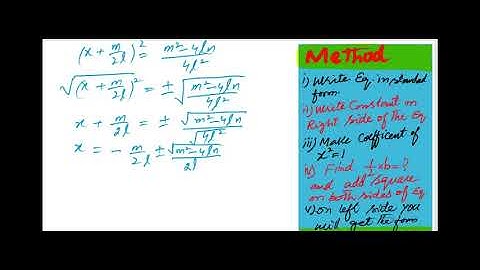 (x + m/2l)² = m²-4ln/4l²
√(x + m/2l)² = ± √m²-4ln/4l²
x + m/2l = ± √m²-4ln/√4l²
x = - m/2l ± √m²-4ln/2l
Method
i) Write Eq. in standard
form.
ii) Write Constant on
Right side of the Eq
iii) Make Coefficent of
x²=1
iv) Find ½×b=?
and add square
on both sides of Eq
v) on left side you
will get the form